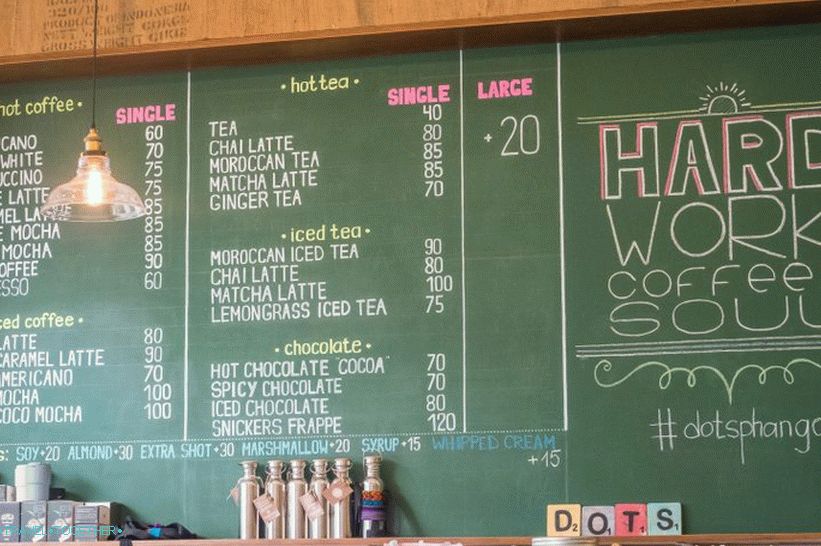 PRODUCT OF INDONESIA
hot coffee •
SINGLE
CANO 60
WHITE 70
UCCINO 75
E LATTE 75
MEL LA 85
E MOCHA 85
MOCHA 85
OFFEE 90
ESSO 60
ced coffee •
LATTE 80
CARAMEL LATTE 90
AMERICANO 70
MOCHA 100
COCO MOCHA 100
• hot tea •
SINGLE
LARGE
TEA 40
CHAI LATTE 80
MOROCCAN TEA 85
MATCHA LATTE 85
GINGER TEA 70
+20
• iced tea •
MOROCCAN ICED TEA 90
CHAI LATTE 80
MATCHA LATTE 100
LEMONGRASS ICED TEA 75
• chocolate •
HOT CHOCOLATE "COCOA" 70
SPICY CHOCOLATE 70
ICED CHOCOLATE 80
SNICKERS FRAPPE 120
S: SOY+20 ALMOND+30 EXTRA SHOT+30 MARSHMALLOW+20 SYRUP+15 WHIPPED CREAM
+15
HARD
WORK
COFFEE
SOU
#dotsphanga
DOTS